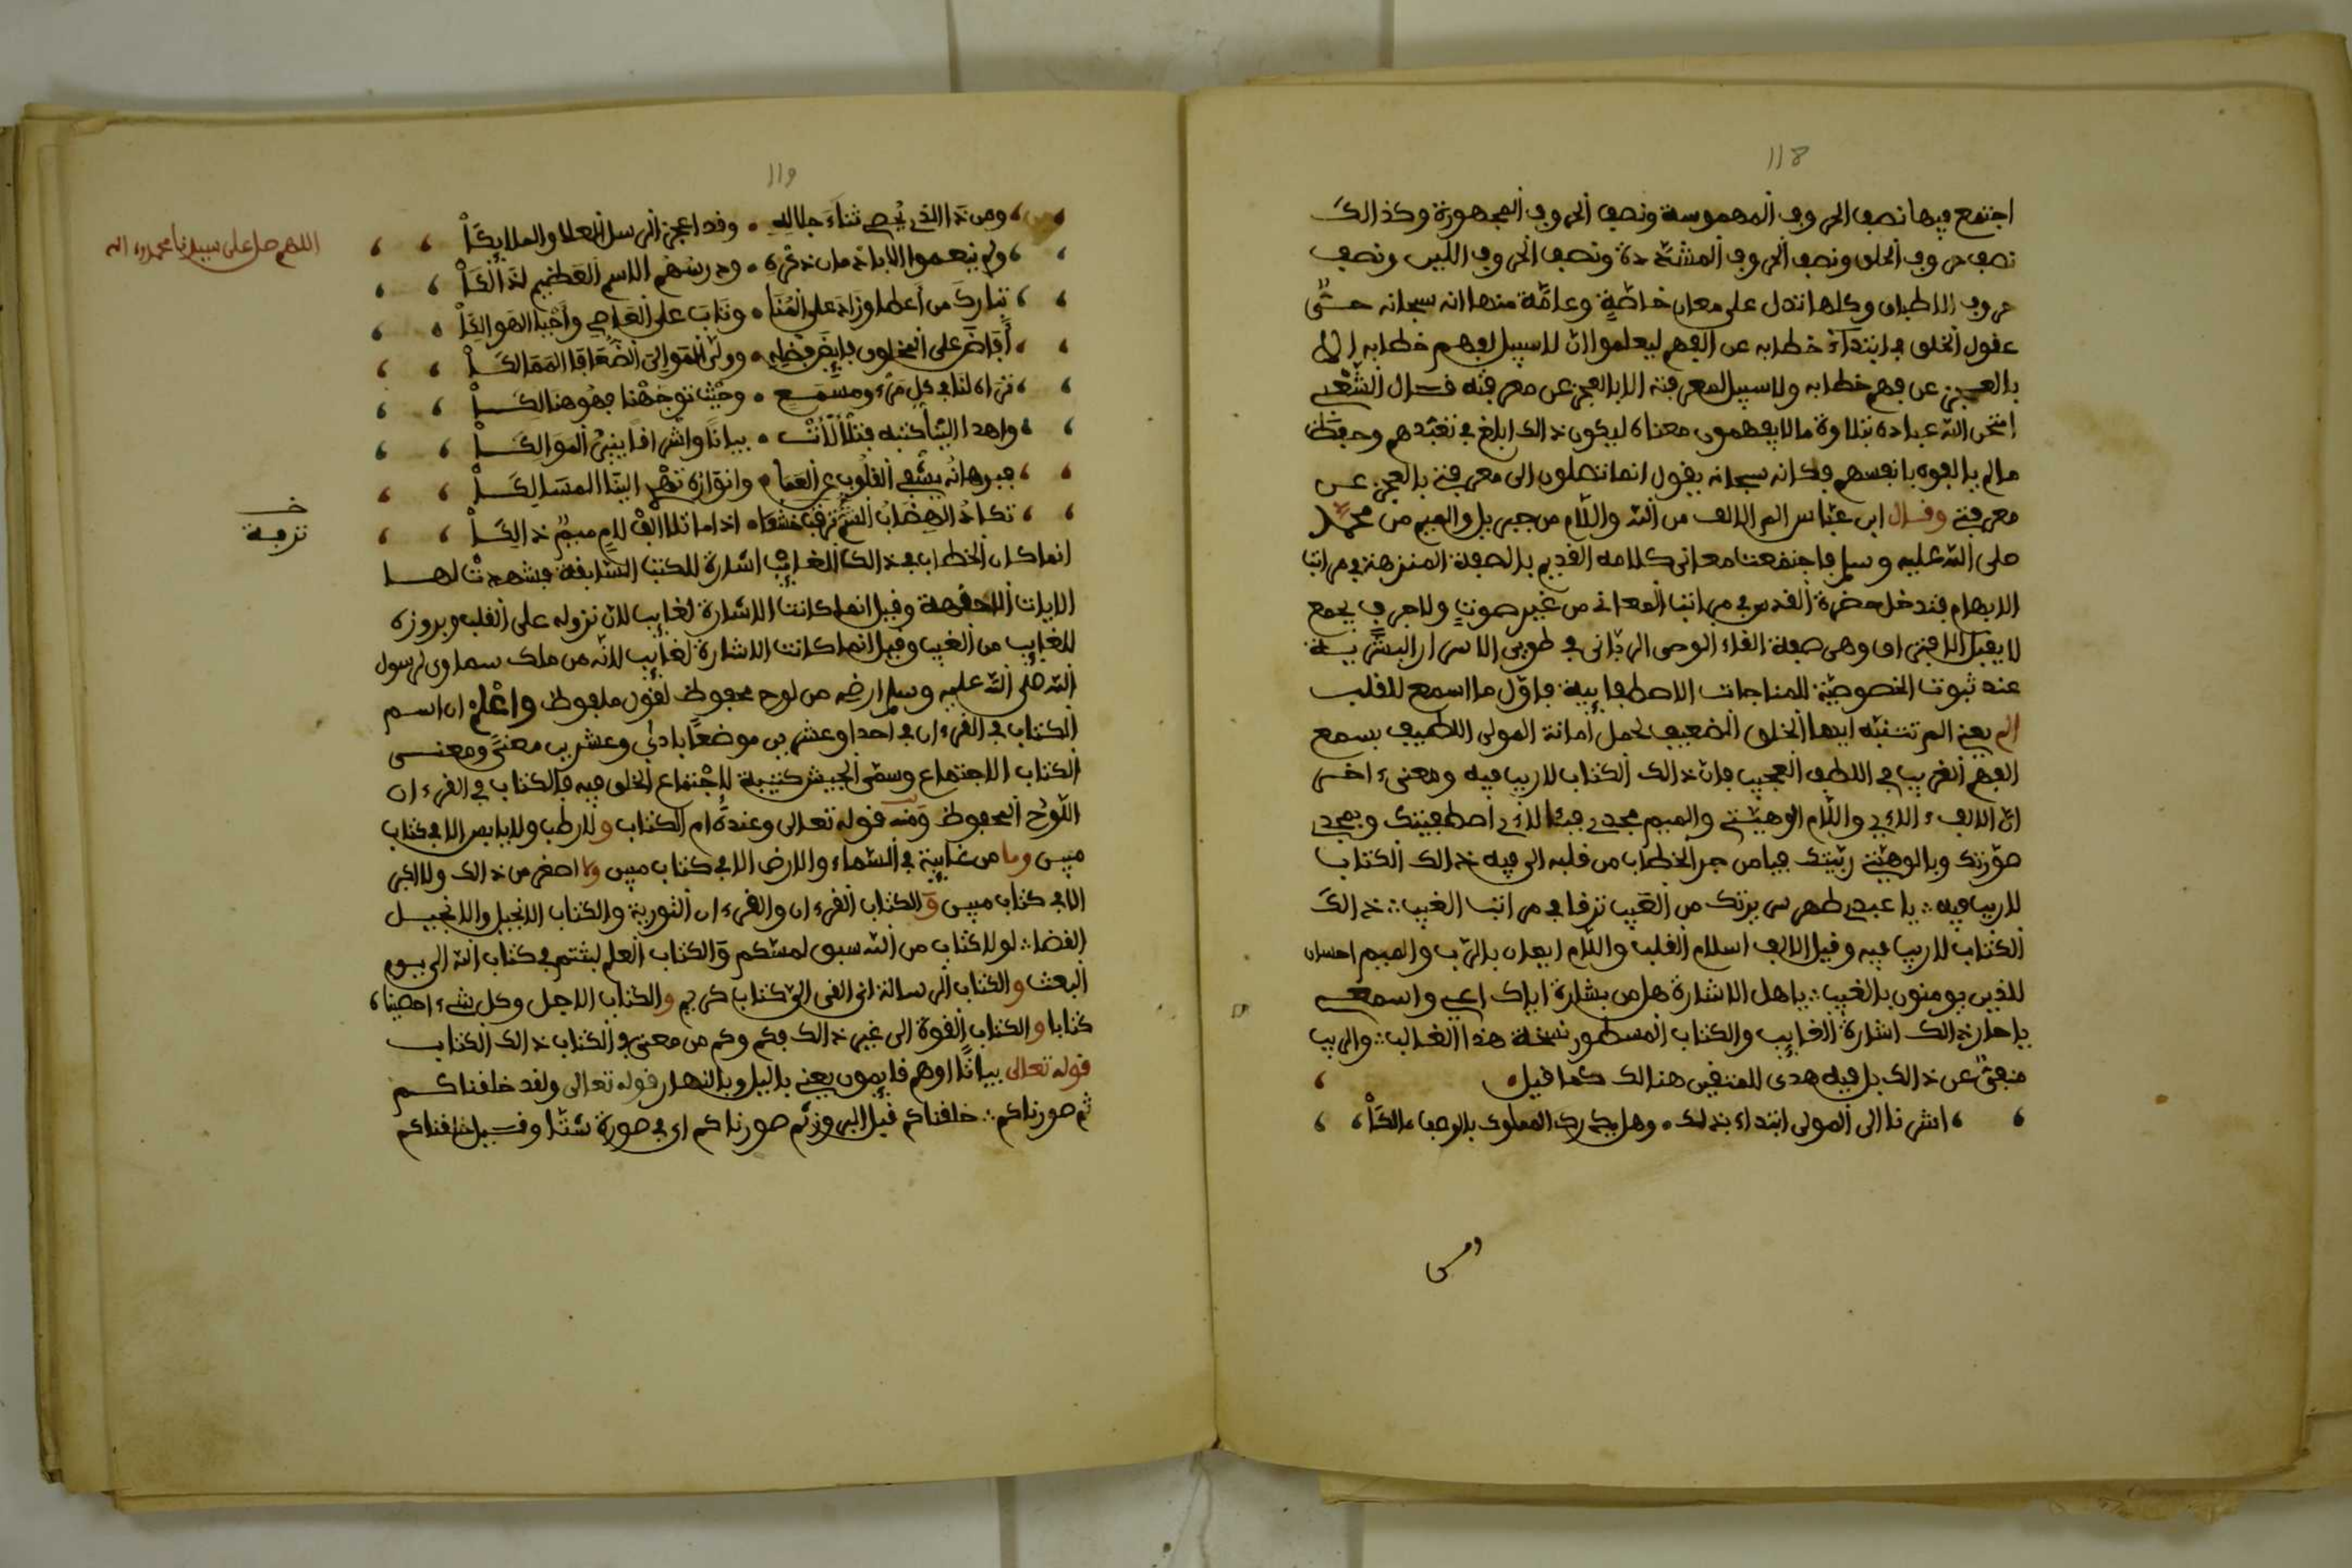 118
اجتمع فيها نصف الحروف المهموسة ونصف الحروف المجهورة وكذالك
نصف حروف الحلق ونصف الحروف المشددة ونصف الحروف اللين ونصف
حروف الاطباق وكلها تدل على معان خاصة وعامة منها انه سبحانه حير
عقول الخلق في ابتداء خطابه عن الفهم ليعلموا ان لا سبيل لفهم خطابه الا
بالعجز عن فهم خطابه ولا سبيل لمعرفته الا بالعجز عن معرفته قال الشعبي
امتحن الله عباده بتلاوة ما لا يفهمون معناه ليكون ذالك ابلغ في تعبدهم وحفظ
ما لم يالفوه بانفسهم فكانه سبحانه يقول انما تصلون الى معرفتي بالعجز عن
معرفتي وقال ابن عباس الم الالف من الله واللام من جبريل والميم من محمد
صلى الله عليه وسلم فاجتمعت معاني كلامه القديم بالصفة المنزهة في مراتب
الابهام فتدخل حضرة القدس في مراتب المعاني من غير صوت ولا حرف يجمع
لا يقبل الافتراق وهي صفة القاء الوحي الرباني في طوبى الاسرار البشرية
عند ثبوت الخصوصية للمناجات الاصطفايية فاول ما اسمع للقلب
الم يعني الم تتنبه ايها الخلق الضعيف لحمل امانة المولى اللطيف بسمع
الفهم الغريب في اللطف العجيب فان ذالك الكتاب لا ريب فيه ومعنى ءاخر
ان الالف ءالاءي واللام الوهيتي والميم مجدي فبئالاءي اصطفيتك وبمجدي
صورتك وبالوهيتي ربيتك فيا من جر الخطاب من قلبه الى فيه ذالك الكتاب
لا ريب فيه ∴ يا عبدي طهر سريرتك من العيب ترقا في مراتب الغيب ∴ ذالك
الكتاب لا ريب فيه وقيل الالف اسلام القلب واللام ايمان بالرب والميم احسان
للذين يومنون بالغيب ∴ يا هل الاشارة هل من بشارة اياك اعني واسمعي
يا جار ذالك اشارة الغايب والكتاب المسطور نسخة هذا الغالب ∴ والريب
منفي عن ذالك بل فيه هدى للمتقين هنالك كما قيل
اشرنا الى المولى ابتداء بذلك ٠ وهل يدرك المملوك بالوصف مالكا
ومن
119
ومن ذا الذي يحصي ثناء جلاله ٠ وقد اعجز الرسل العلا والملايكا
ولم ينعموا الا باذمان ذكره ٠ ومدرسهم الاسم العظيم لذالكا
تبارك من اعطا وزاد على المنا ٠ وتاب على العاصي واحيا الهوالكا
افاض على المخلوق فايض فضله ٠ وولى الموالي الضعفا الممالكا
تراه لنا في كل مرء ومسمع ٠ وحيث توجهنا فهو هنالكا
واهدا الينا كتبه فتلألأت ٠ بيانا واشراقا ينير الموالكا
فبرهانه يشفي القلوب من العما ٠ وانواره تهدي الينا المسالكا
تكاد الهضاب الشم ترقب خشعا ٠ اذا ما تلا الف لام ميم ذالكا
انما كان الخطاب في ذالك الغايب اشارة للكتب السابقة فشهدت لها
الايات اللاحقة وقيل انما كانت الاشارة لغايب لان نزوله على القلب وبروزه
للغايب من الغيب وقيل انما كانت الاشارة لغايب لانه من ملك سماوي لرسول
الله صلى الله عليه وسلم ارضي من لوح محفوظ لقول ملفوظ واعلم ان اسم
الكتاب في القرءان في احدا وعشرين موضعا يا دلي وعشرين معنى ومعنى
الكتاب الاجتماع وسمى الجيش كتيبة لاجتماع الخلق فيه فالكتاب في القرءان
اللوح المحفوظ ومنه قوله تعالى وعنده ام الكتاب ولا رطب ولا يابس الا في كتاب
مبين وما من غايبة في السماء والارض الا في كتاب مبين ولا اصغر من ذالك ولا اكبر
الا في كتاب مبين والكتاب القرءان والقرءان التورية والكتاب الانجيل والانجيل
القضا ∴ لولا كتاب من الله سبق لمسكم والكتاب العلم لبثتم في كتاب الله الى يوم
البعث والكتاب الرسالة اني القي الي كتاب كريم والكتاب الاجل وكل شيء احصيناه
كتابا والكتاب القوة الى غير ذالك فكم وكم من معنى في الكتاب ذالك الكتاب
قوله تعالى بياتا اوهم قايمون يعني باليل وبالنهار قوله تعالى ولقد خلقناكم
ثم صورناكم ∴ خلقناكم قبل البروز ثم صورناكم اي في صورة شتا وقيل خلقناكم
اللهم صل على سيدنا محمد واله
نزهة